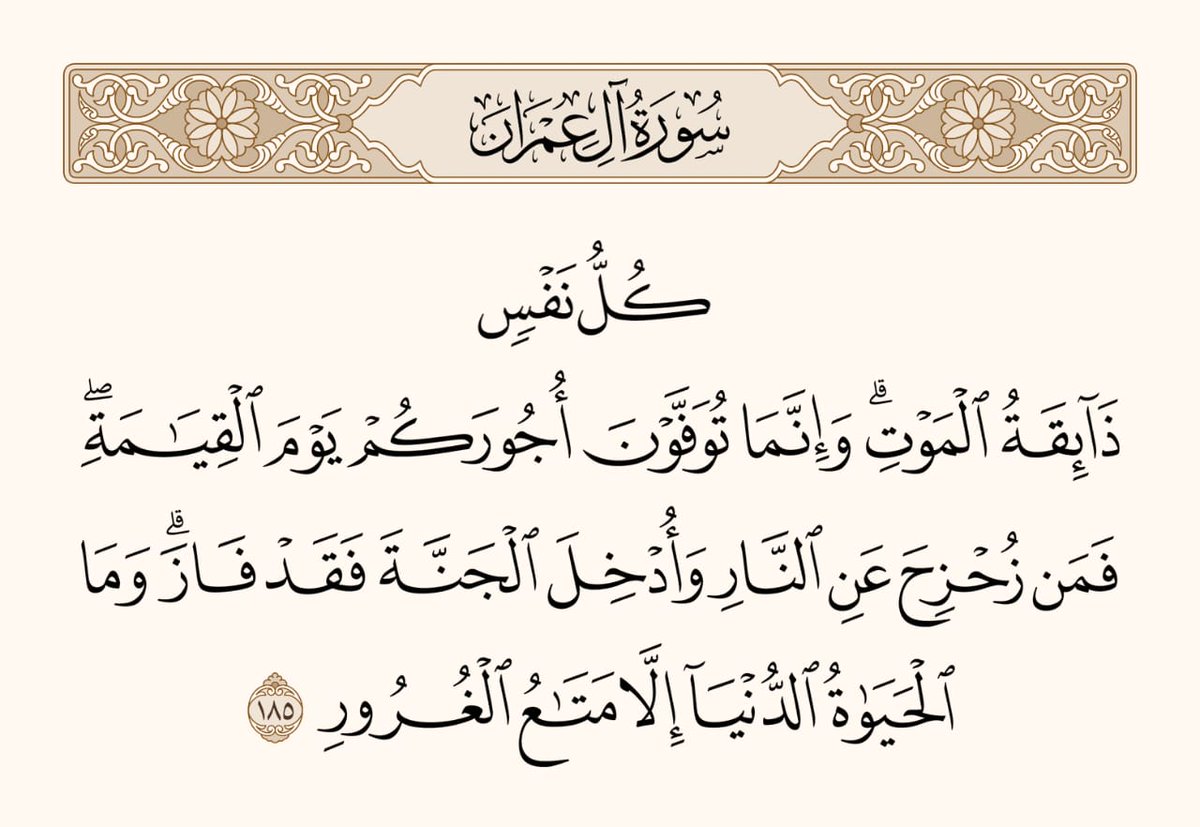 سُورَةُ آلِ عِمْرَان
كُلُّ نَفۡسٖ
ذَآئِقَةُ ٱلۡمَوۡتِۗ وَإِنَّمَا تُوَفَّوۡنَ أُجُورَكُمۡ يَوۡمَ ٱلۡقِيَٰمَةِۖ
فَمَن زُحۡزِحَ عَنِ ٱلنَّارِ وَأُدۡخِلَ ٱلۡجَنَّةَ فَقَدۡ فَازَۗ وَمَا
ٱلۡحَيَوٰةُ ٱلدُّنۡيَآ إِلَّا مَتَٰعُ ٱلۡغُرُورِ ١٨٥